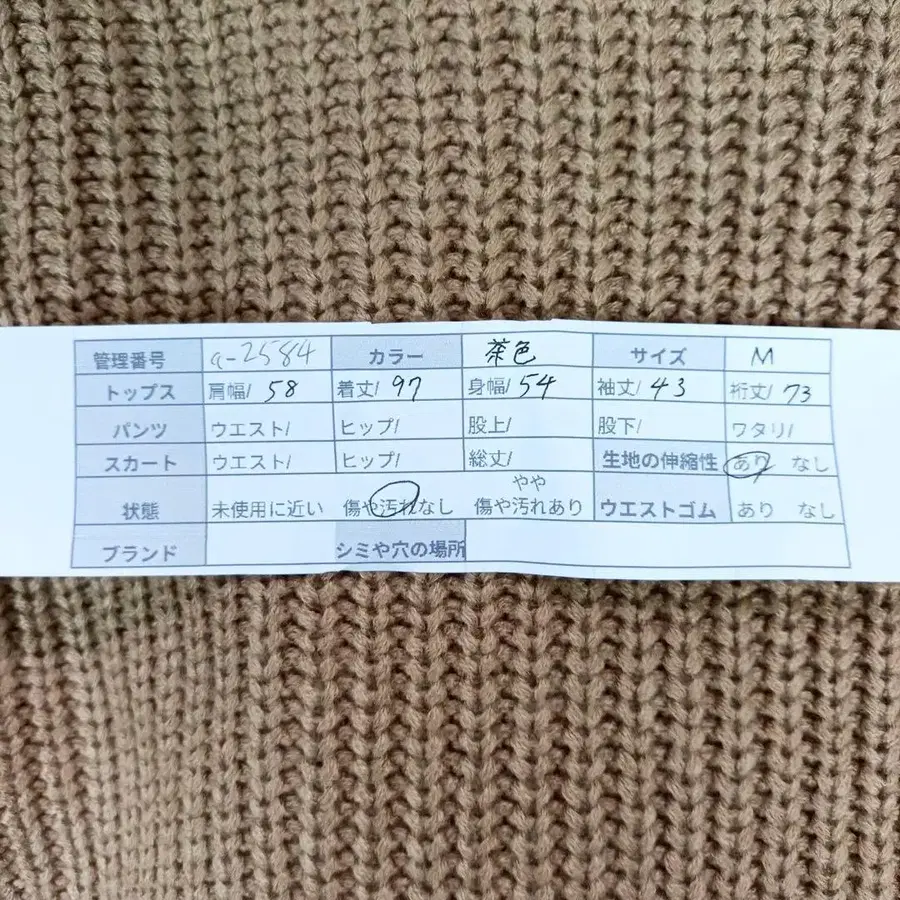 管理番号 a-2584 カラー 茶色 サイズ M
トップス 肩幅/ 58 着丈/ 97 身幅/ 54 袖丈/ 43 裄丈/ 73
パンツ ウエスト/ ヒップ/ 股上/ 股下/ ワタリ/
スカート ウエスト/ ヒップ/ 総丈/ 生地の伸縮性 あり なし
やや
状態 未使用に近い 傷や汚れなし 傷や汚れあり ウエストゴム あり なし
ブランド シミや穴の場所